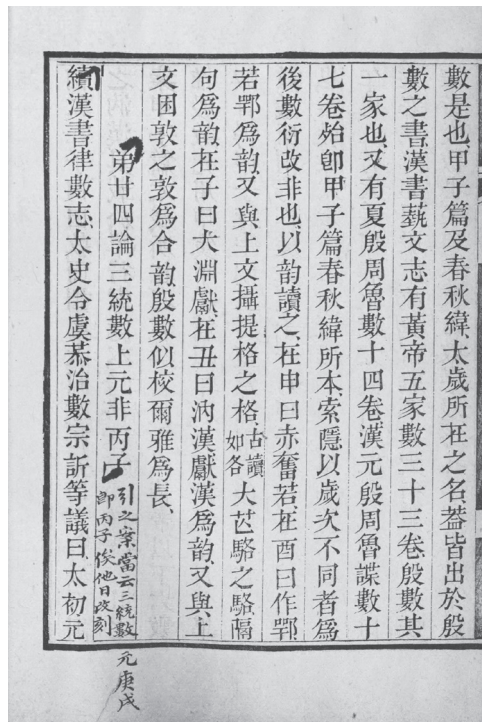 數是也甲子篇及春秋緯太歲所在之名蓋皆出於殷
數之書漢書蓺文志有黃帝五家數三十三卷殷數其
一家也又有夏殷周魯數十四卷漢元殷周魯諜數十
七卷殆卽甲子篇春秋緯所本索隱以歲次不同者爲
後數衍改非也以韵讀之在申曰赤奮若在酉曰作鄂
若鄂爲韵又與上文攝提格之格古讀如各大芒駱之駱隔
句爲韵在子曰大淵獻在丑曰汭漢獻漢爲韵又與上
文困敦之敦爲合韵殷數似校爾雅爲長
弟廿四論三統數上元非丙子
引之案當云三統數元庚戌
卽丙子俟他日改刻
續漢書律數志太史令虞恭治數宗訢等議曰太初元